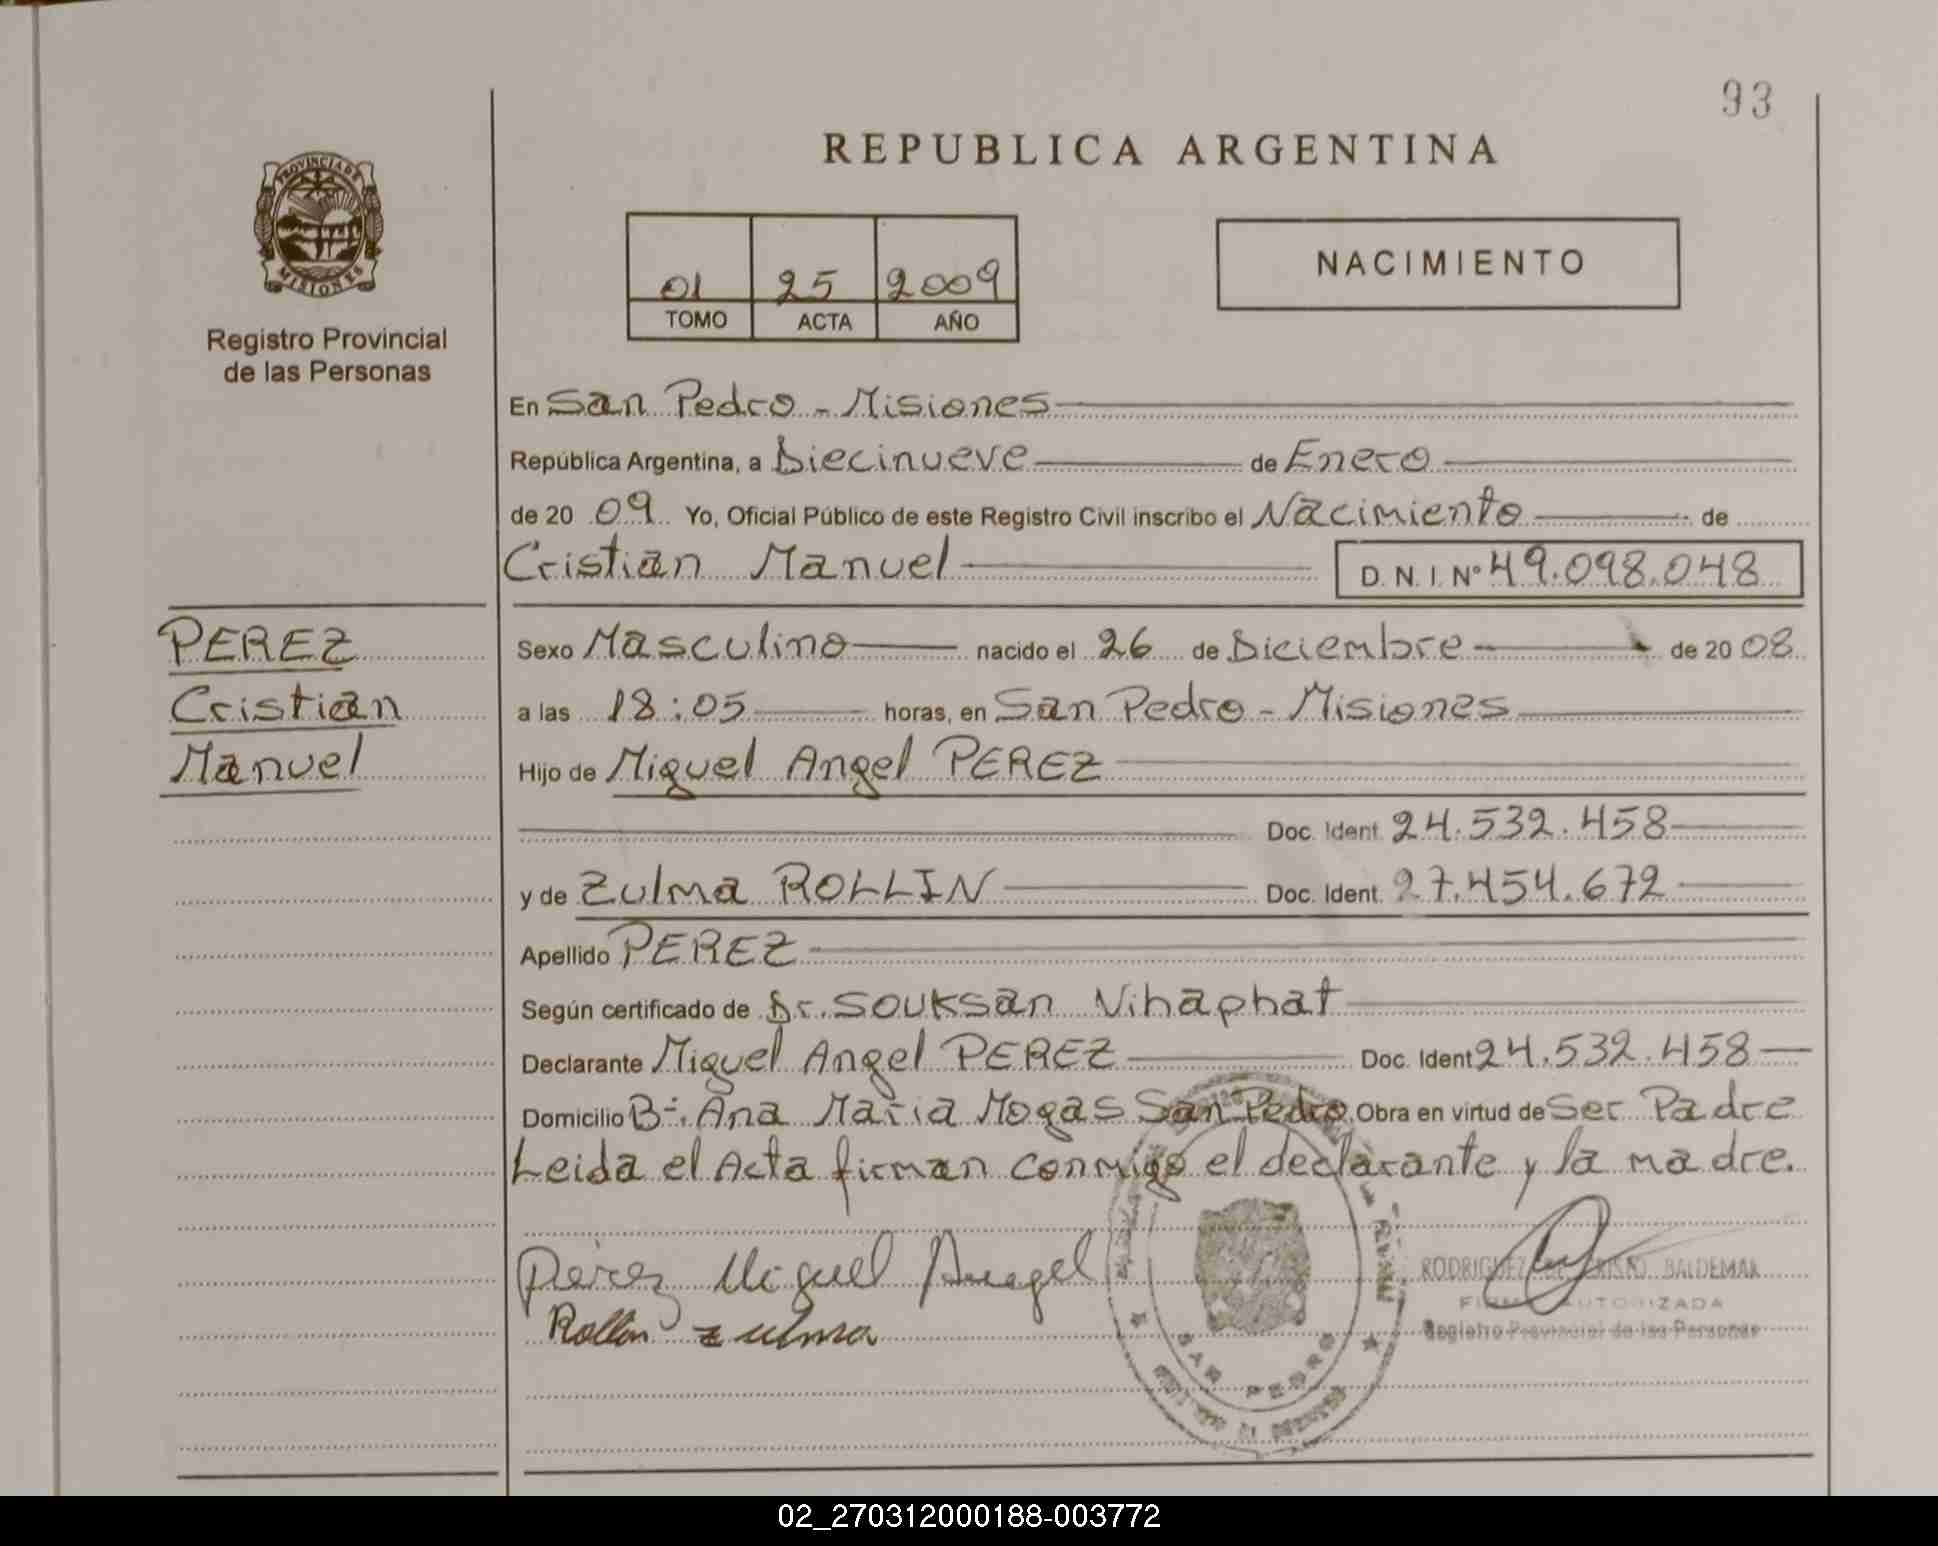 93
REPUBLICA ARGENTINA
PROVINCIA DE
MISIONES
01 25 2009
TOMO ACTA AÑO
NACIMIENTO
Registro Provincial
de las Personas
En San Pedro - Misiones
República Argentina, a Diecinueve de Enero
de 20 09 Yo, Oficial Público de este Registro Civil inscribo el Nacimiento de
Cristian Manuel D. N. I. Nº 49.098.048
PEREZ
Cristian
Manuel
Sexo Masculino nacido el 26 de Diciembre de 20 08
a las 18:05 horas, en San Pedro - Misiones
Hijo de Miguel Angel PEREZ
Doc. Ident. 24.532.458
y de Zulma ROLLIN Doc. Ident. 27.454.672
Apellido PEREZ
Según certificado de Dr. Souksan Vihaphat
Declarante Miguel Angel PEREZ Doc. Ident 24.532.458
Domicilio B-. Ana Maria Mogas San Pedro Obra en virtud de Ser Padre
Leida el Acta firman conmigo el declarante y la madre.
Pérez Miguel Angel
Rollin Zulma
RODRIGUEZ BALDEMAR
FIRMA AUTORIZADA
Registro Provincial de las Personas
SAN PEDRO
02_270312000188-003772